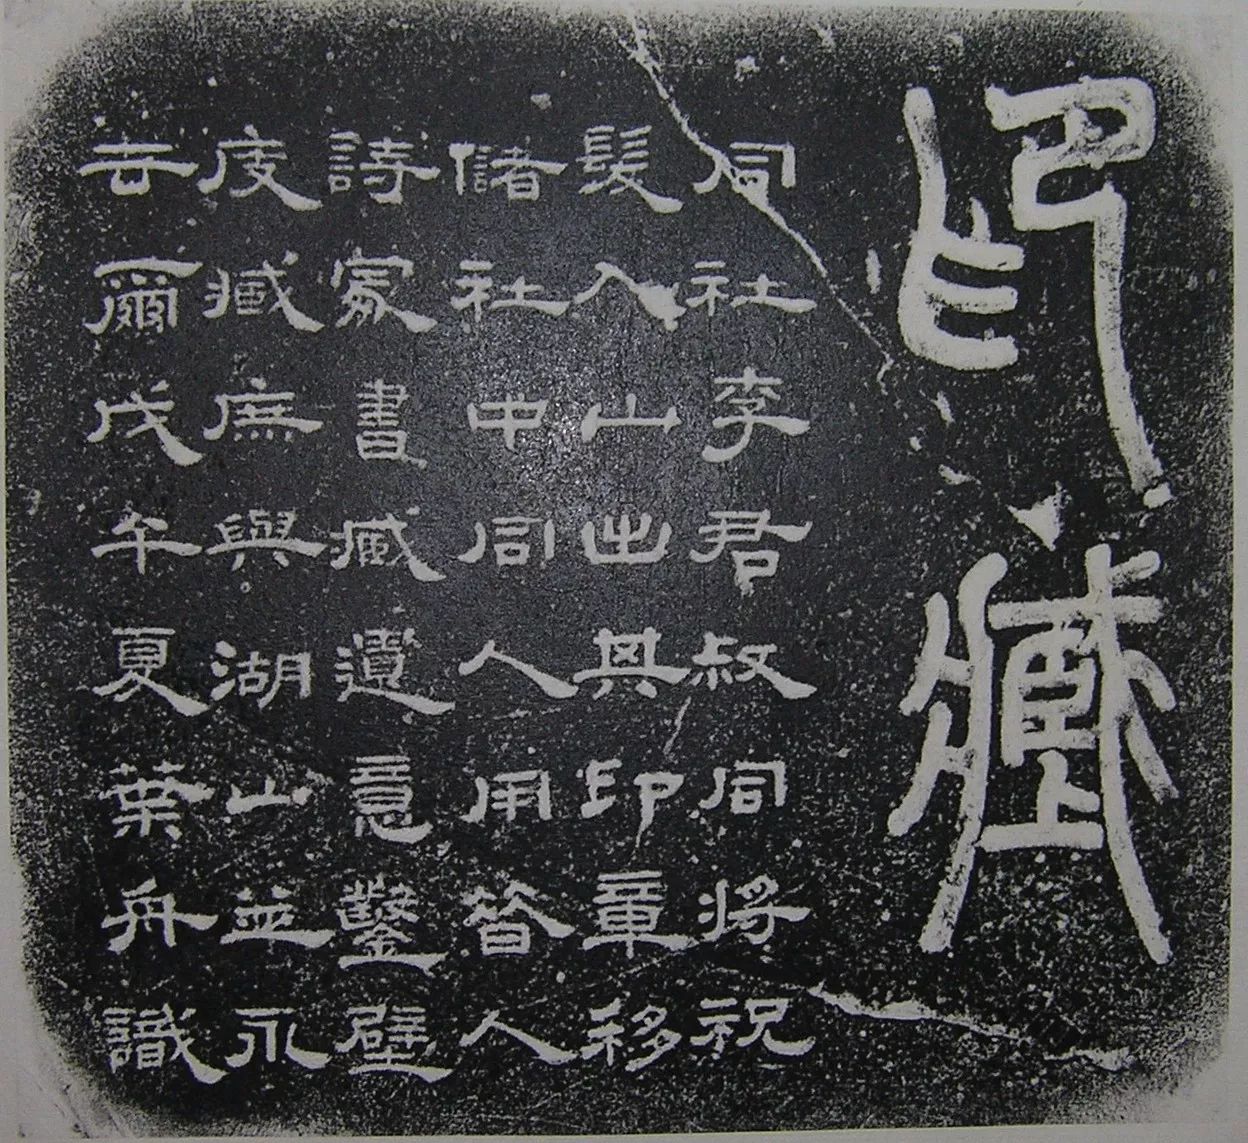 印藏
同社李君叔同将祝
髮入山出其印章移
儲社中同人用昔人
詩冢書藏遺意鑿壁
庋藏庶與湖山並永
云爾戊午夏葉舟識